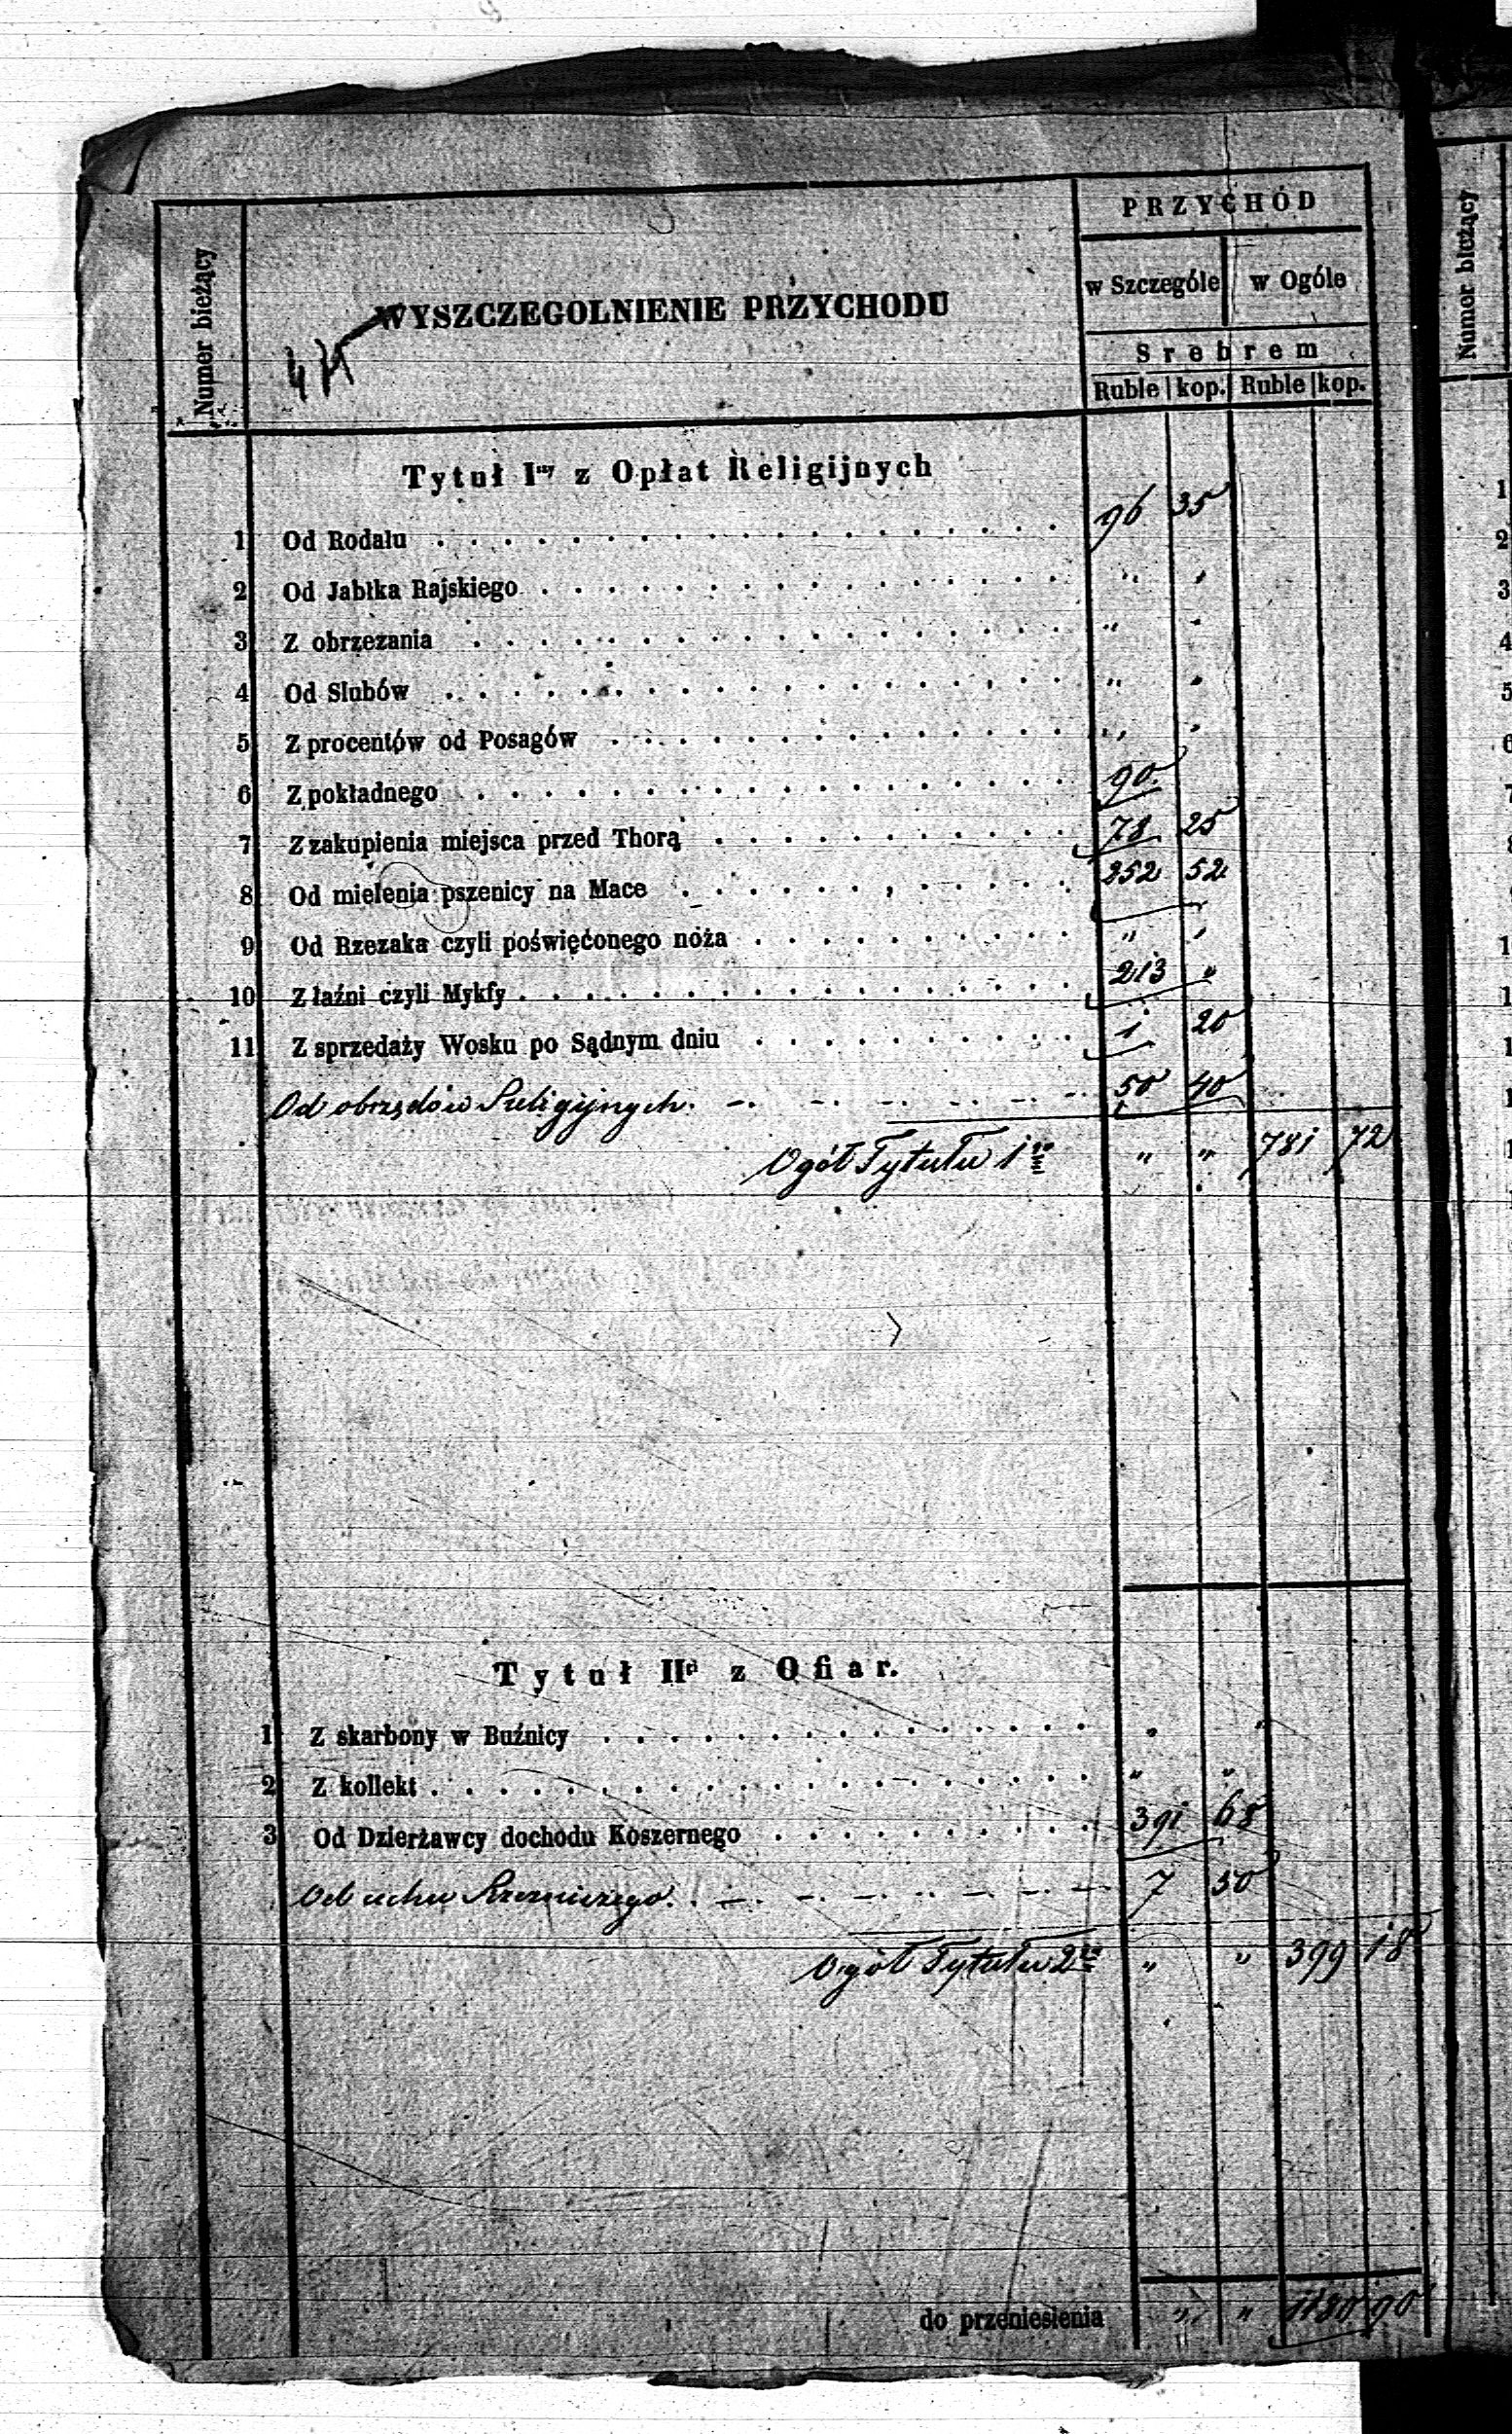 PRZYCHÓD
Numer bieżący
WYSZCZEGOLNIENIE PRZYCHODU
w Szczególe w Ogóle
Srebrem
Ruble kop. Ruble kop.
Tytuł Iszy z Opłat Religijnych
1 Od Rodału . . . . . . . . . . . . . . . . . . . 96 35
2 Od Jabłka Rajskiego . . . . . . . . . . . . . . . . " "
3 Z obrzezania . . . . . . . . . . . . . . . . . . " "
4 Od Slubów . . . . . . . . . . . . . . . . . . . " "
5 Z procentów od Posagów . . . . . . . . . . . . . . " "
6 Z pokładnego . . . . . . . . . . . . . . . . . . 90
7 Z zakupienia miejsca przed Thorą . . . . . . . . . . . 78 25
8 Od mielenia pszenicy na Mace . . . . . . . . . . . . 252 52
9 Od Rzezaka czyli poświęconego noża . . . . . . . . . . " "
10 Z łaźni czyli Mykfy . . . . . . . . . . . . . . . . 213 "
11 Z sprzedaży Wosku po Sądnym dniu . . . . . . . . . . 1 20
Od obrzędów Religijnych. 50 40
Ogół Tytułu 1go " " 781 72
Tytuł IIgi z Ofiar.
1 Z skarbony w Buźnicy . . . . . . . . . . . . . . . " "
2 Z kollekt . . . . . . . . . . . . . . . . . . . . " "
3 Od Dzierżawcy dochodu Koszernego . . . . . . . . . . 391 68
7 50
Ogół Tytułu 2go " " 399 18
do przeniesienia " " 1180 90
Numer bieżący